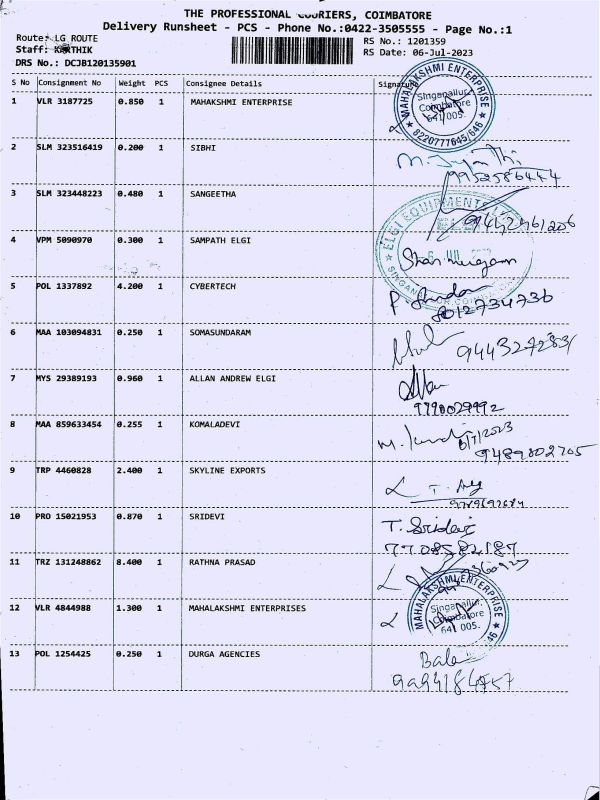 THE PROFESSIONAL COURIERS, COIMBATORE
Delivery Runsheet - PCS - Phone No.:0422-3505555 - Page No.:1
Route: LG ROUTE
RS No.: 1201359
Staff: KARTHIK
RS Date: 06-Jul-2023
DRS No.: DCJB120135901
S No Consignment No Weight PCS Consignee Details Signature
1 VLR 3187725 0.850 1 MAHAKSHMI ENTERPRISE
MAHALAKSHMI ENTERPRISE
Singanallur,
Coimbatore
641 005.
8220777645/646
2 SLM 323516419 0.200 1 SIBHI
9952586444
3 SLM 323448223 0.480 1 SANGEETHA
ELGI EQUIPMENTS
ELGI
4 VPM 5090970 0.300 1 SAMPATH ELGI
5 POL 1337892 4.200 1 CYBERTECH
8012734736
6 MAA 103094831 0.250 1 SOMASUNDARAM
7 MYS 29389193 0.960 1 ALLAN ANDREW ELGI
Allan
9790029992
8 MAA 859633454 0.255 1 KOMALADEVI
6/7/2023
9489802705
9 TRP 4460828 2.400 1 SKYLINE EXPORTS
10 PRO 15021953 0.870 1 SRIDEVI
T. Sridevi
7708582187
11 TRZ 131248862 8.400 1 RATHNA PRASAD
12 VLR 4844988 1.300 1 MAHALAKSHMI ENTERPRISES
MAHALAKSHMI ENTERPRISE
Singanallur,
Coimbatore
641 005.
13 POL 1254425 0.250 1 DURGA AGENCIES
Bala